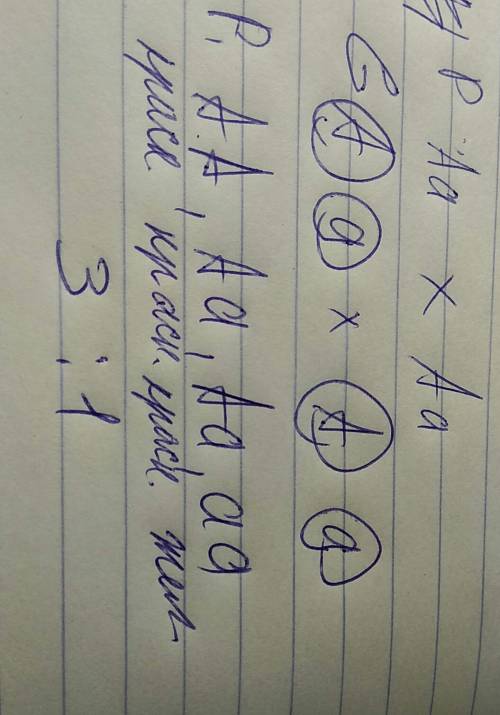 P Aa × Aa
G A a × A a
P, AA, Aa, Aa, aa
красн, красн. красн. желт
3 : 1